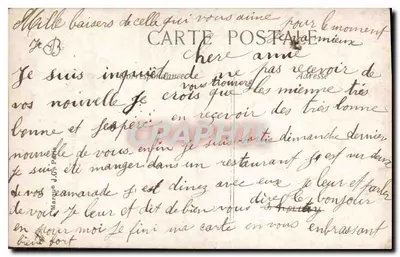 Mille baisers de celle qui vous aime pour le moment
je va mieux
CARTE POSTALE
chere amie
Correspondance
Adresse
Je suis inquiet de ne pas recevoir de
vous trouverez
vos nouvelle Je crois que les mienne très
bonne et j'espère en recevoir des très bonne
nouvelle de vous enfin je suis sortie dimanche dernier
je suis été manger dans un restaurant il est venu deux
de vos camarade il est dinez avec eux je leur et parler
de vous Je leur et dit de bien vous dire le bonjour
en pour moi Je fini ma carte en vous embrassant
bien fort